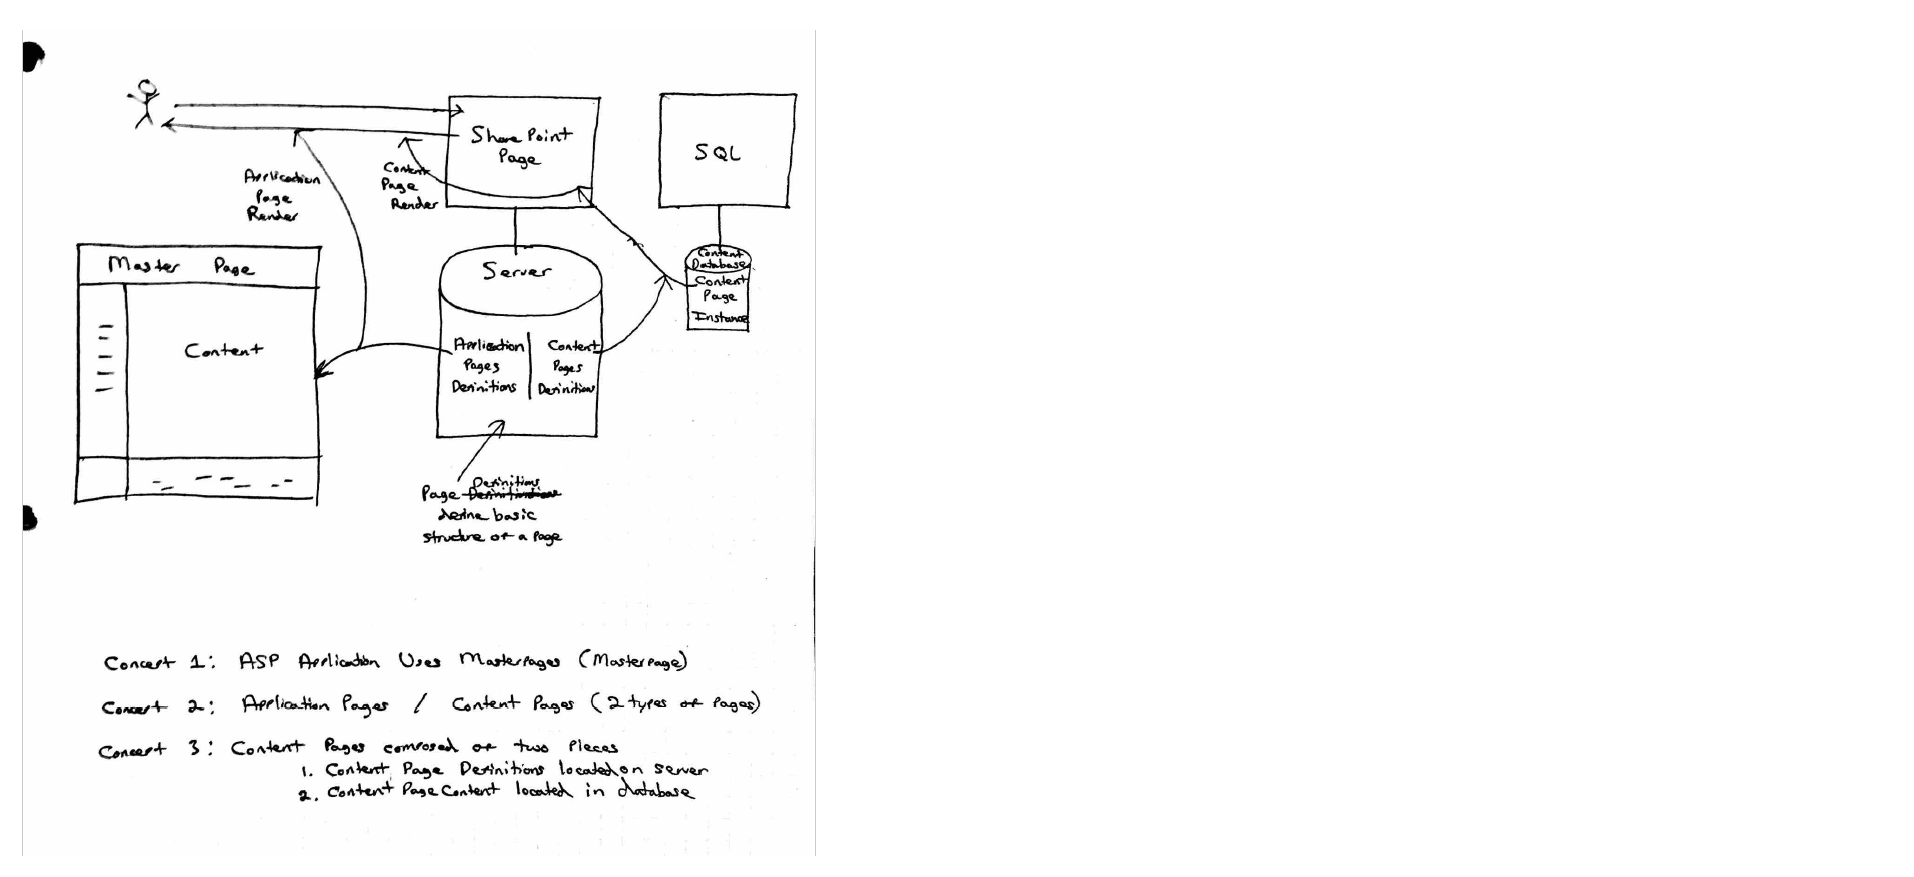 SharePoint
Page
SQL
Application
Page
Render
Content
Page
Render
Master Page
Content
Server
Application
Pages
Definitions
Content
Pages
Definition
Content
Database
Content
Page
Instance
Definitions
Page
define basic
structure of a page
Concept 1: ASP Application Uses Masterpages (Masterpage)
Concept 2: Application Pages / Content Pages (2 types of pages)
Concept 3: Content Pages composed of two pieces
1. Content Page Definitions located on server
2. Content Page Content located in database